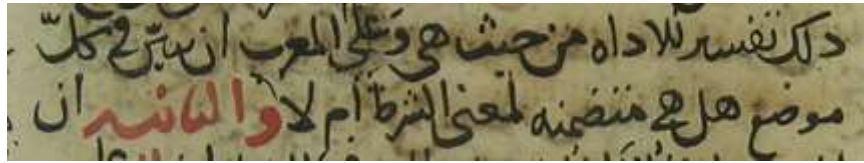 ذلك تفسير للاداة من حيث هي وعلى المعرب ان يبين في كل
موضع هل هي متضمنة لمعنى الشرط أم لا والثانية ان